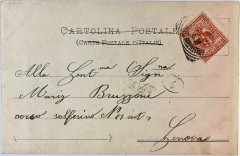 CARTOLINA POSTALE
(CARTE POSTALE D'ITALIE)
Alla Gent.ma Sig.na
Mary Bruzzone
corso Solferino N°
Genova